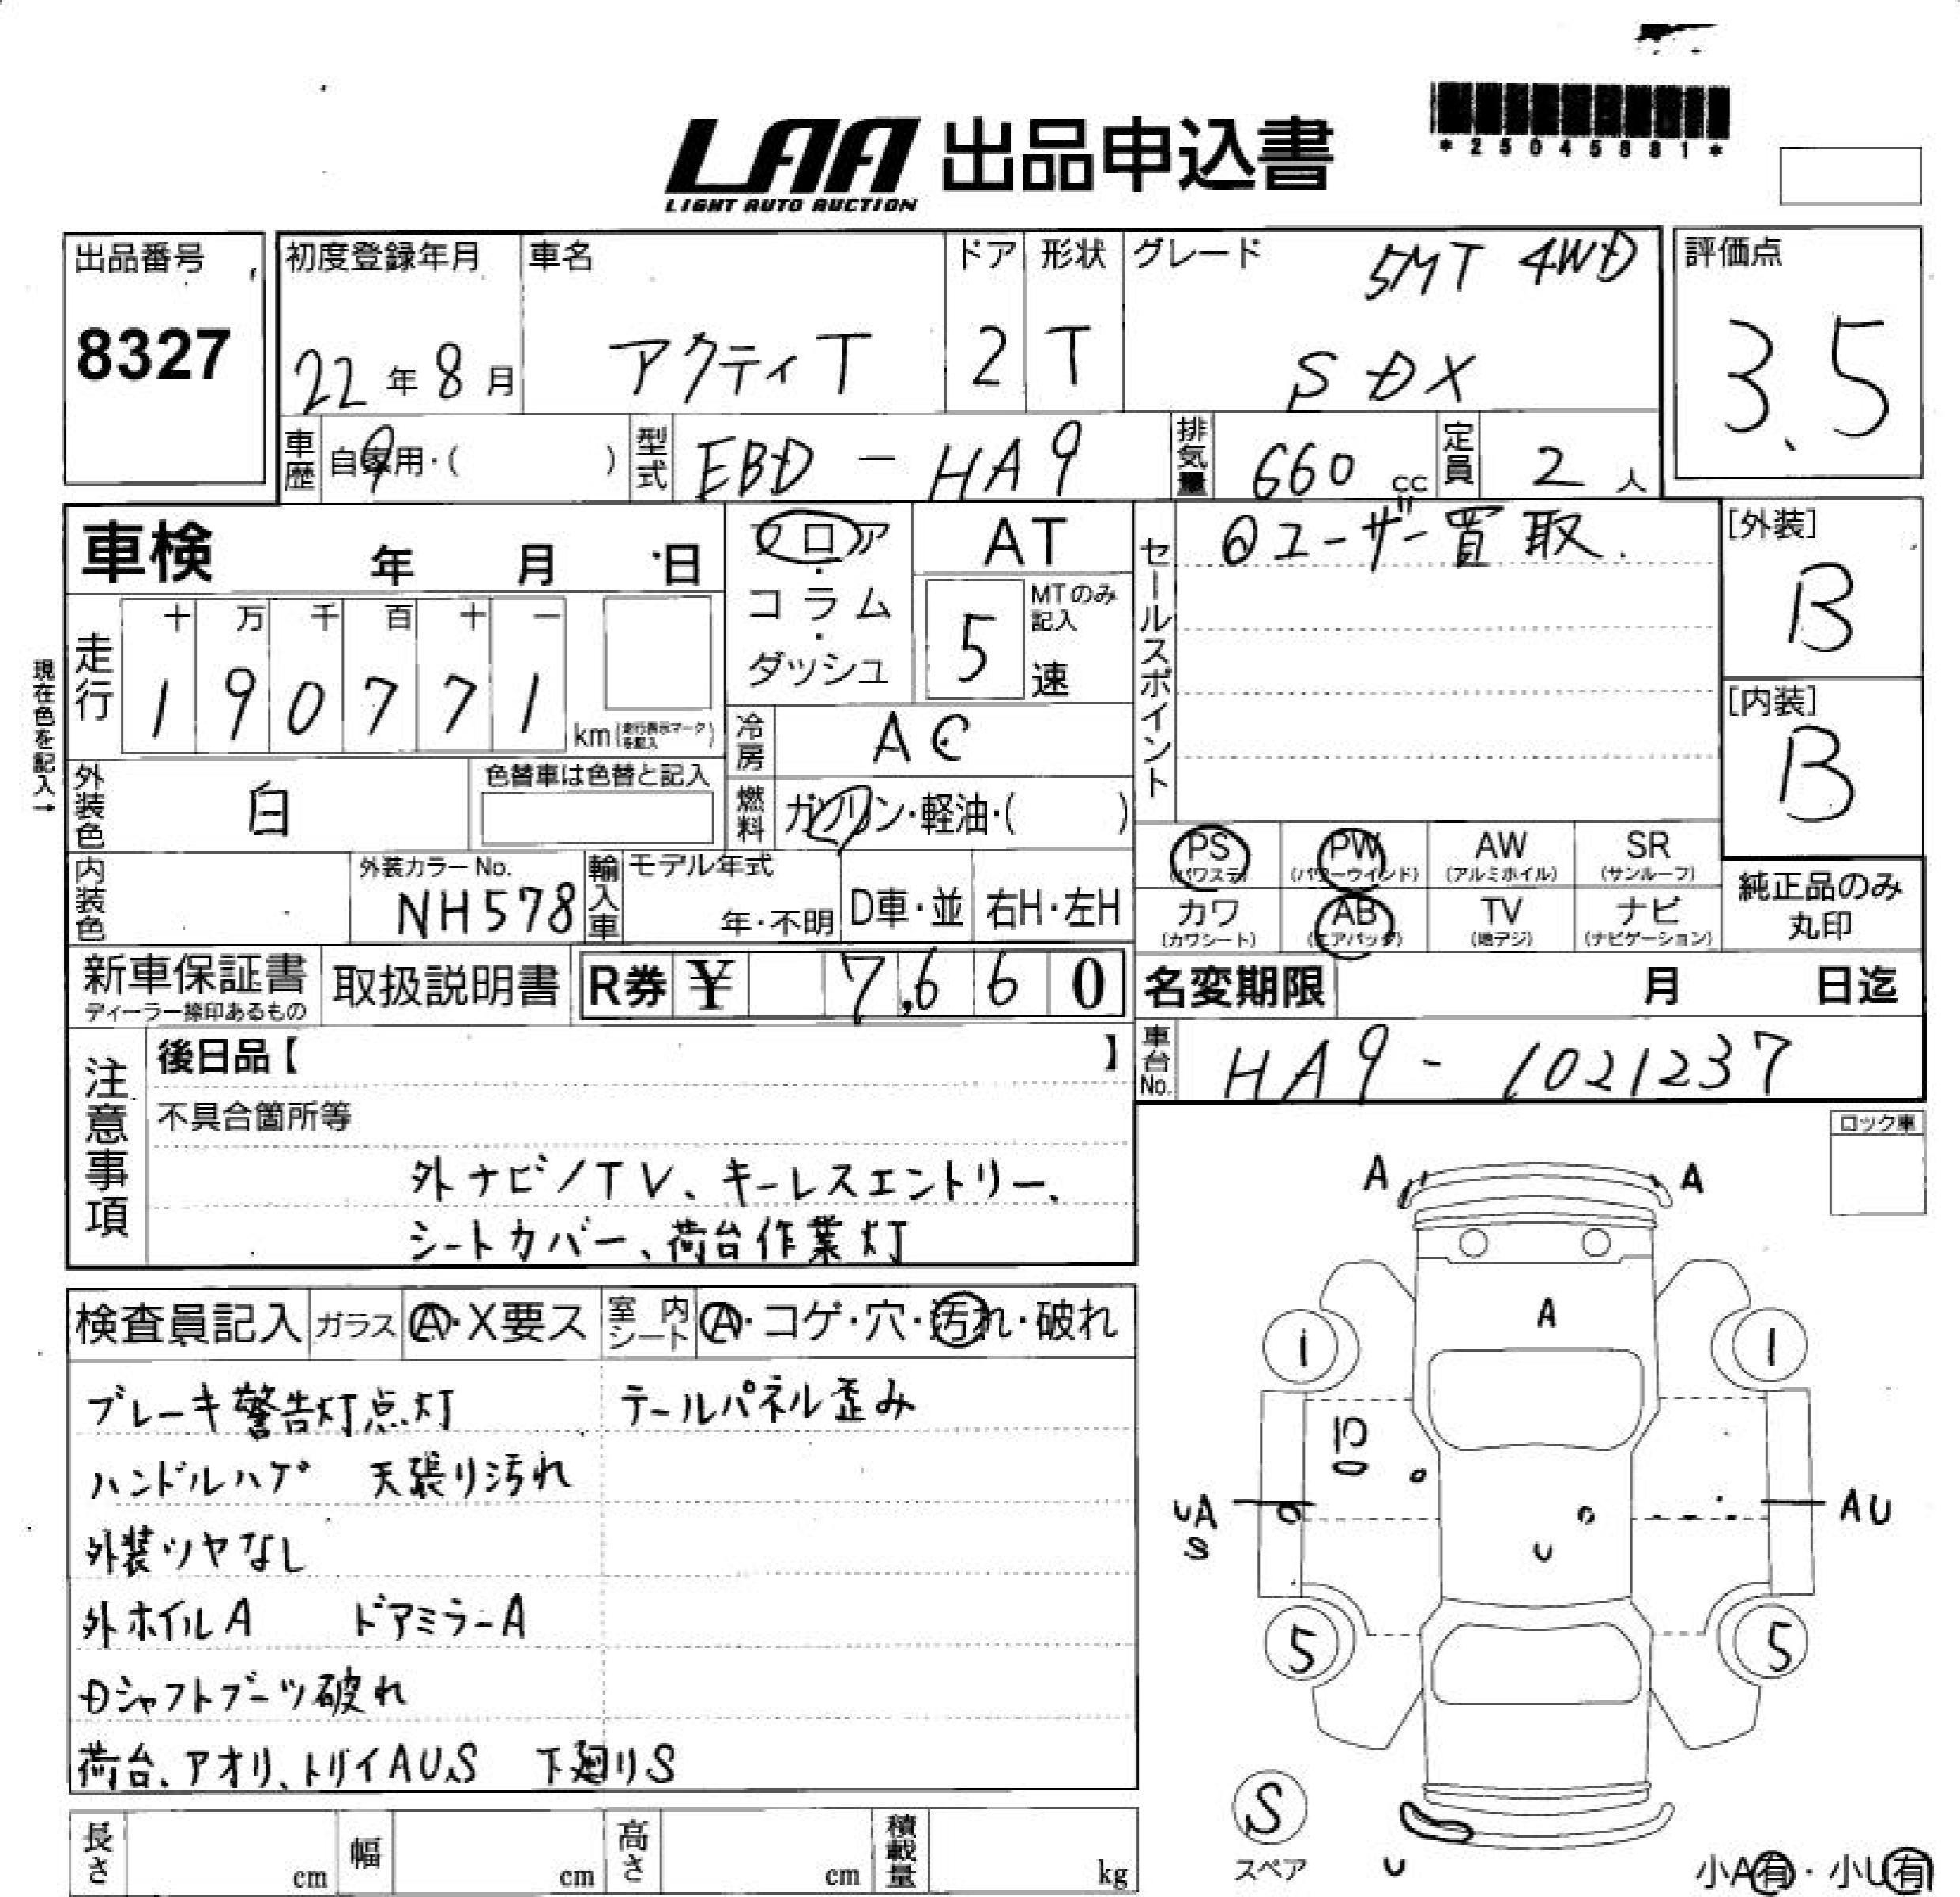 LAA 出品申込書
LIGHT AUTO AUCTION
*25045881*
出品番号 8327
初度登録年月 22年8月
車名 アクティT
ドア 2
形状 T
グレード 5MT 4WD
SDX
評価点 3.5
車歴 自家用・( )
型式 EBD-HA9
排気量 660cc
定員 2人
車検 年 月 日
フロア・コラム・ダッシュ
AT
5 MTのみ記入 速
セールスポイント
ユーザー買取.
[外装] B
[内装] B
現在色を記入→
走行 十 万 千 百 十 一
190771 km(走行表示マークを記入)
冷房 AC
外装色 白
色替車は色替と記入
燃料 ガソリン・軽油・( )
PS (パワステ) PW (パワーウインド) AW (アルミホイル) SR (サンルーフ)
カワ (カワシート) AB (エアバッグ) TV (地デジ) ナビ (ナビゲーション)
純正品のみ丸印
内装色
外装カラーNo. NH578
輸入車 モデル年式 年・不明 D車・並 右H・左H
新車保証書 ディーラー捺印あるもの
取扱説明書
R券 ¥ 7,660
名変期限 月 日迄
車台No. HA9-1021237
注意事項
後日品【 】
不具合箇所等
外ナビ/TV、キーレスエントリー、
シートカバー、荷台作業灯
ロック車
検査員記入 ガラス A・X要ス 室内シート A・コゲ・穴・汚れ・破れ
ブレーキ警告灯点灯 テールパネル歪み
ハンドルハゲ 天張り汚れ
外装ツヤなし
外ホイルA ドアミラーA
Dシャフトブーツ破れ
荷台、アオリ、トリイAUS 下廻りS
A A
A
1 1
UA
S
AU
U
5 5
S
スペア
U
小A有・小U有
長さ cm 幅 cm 高さ cm 積載量 kg